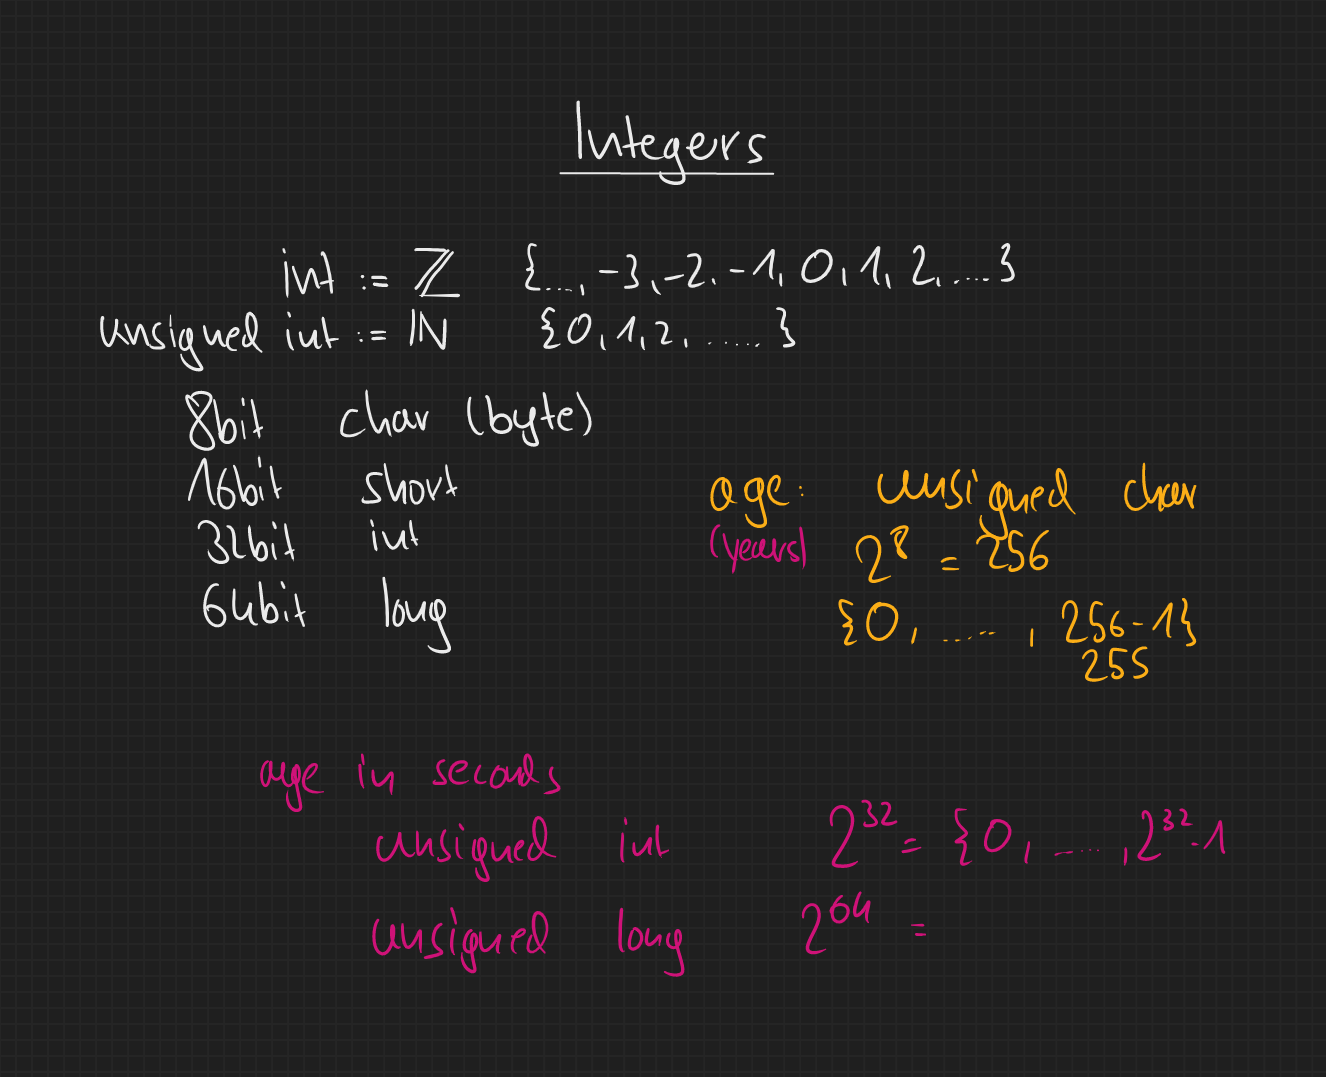 Integers
int := ℤ {..., -3, -2, -1, 0, 1, 2, ....}
unsigned int := ℕ {0, 1, 2, .....}
8bit char (byte)
16bit short
32bit int
64bit long
age: unsigned char
(years) 2⁸ = 256
{0, ......, 256-1}
255
age in seconds
unsigned int 2³² = {0, ...., 2³²-1
unsigned long 2⁶⁴ =